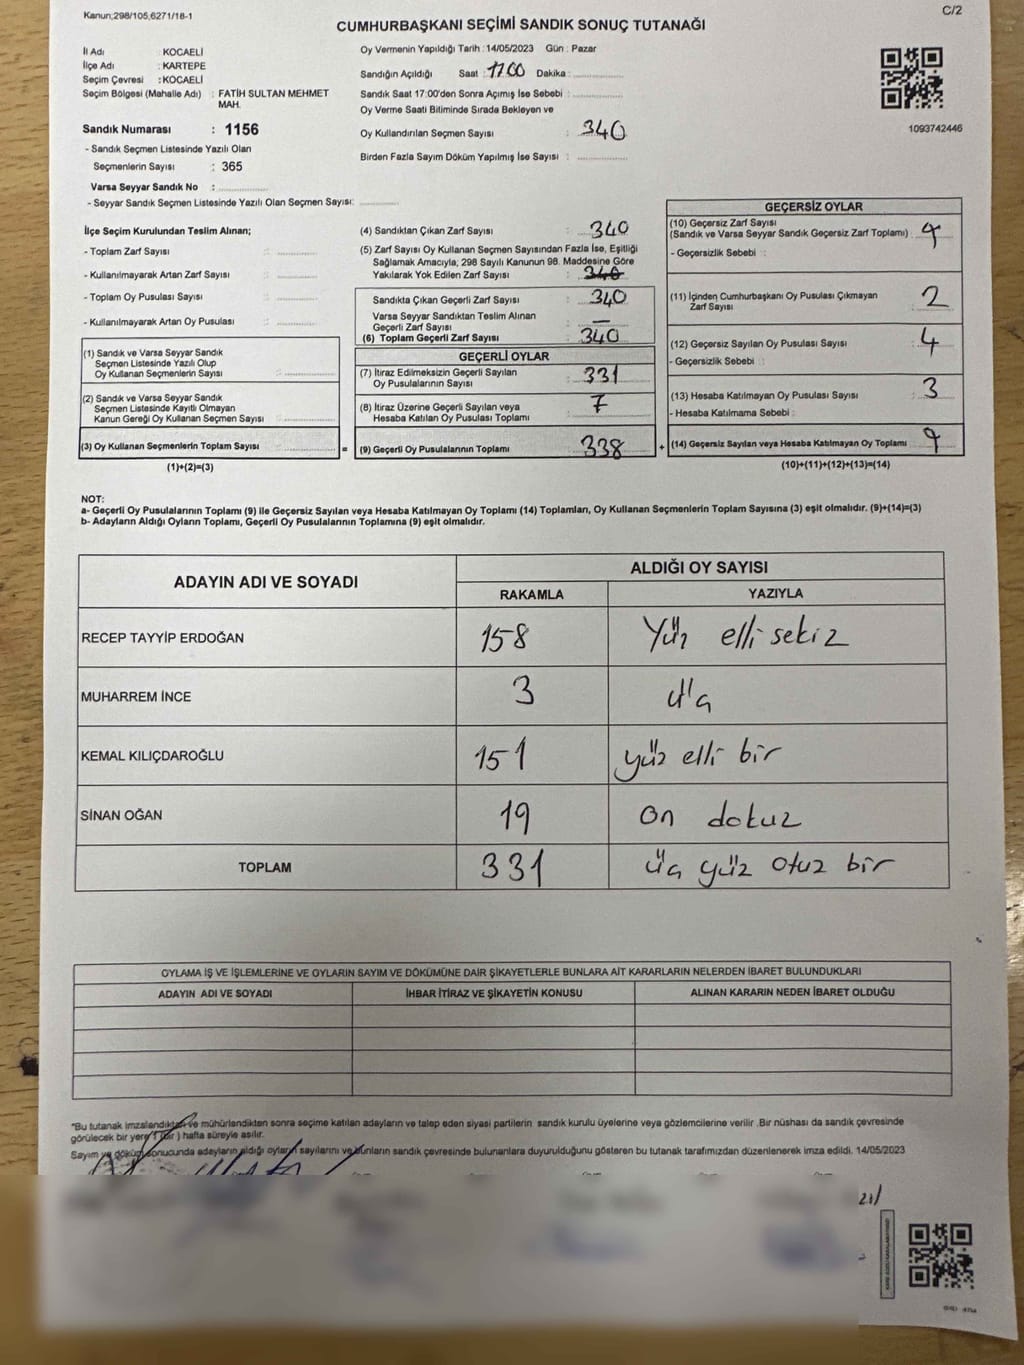 Kanun;298/105,6271/18-1
C/2
CUMHURBAŞKANI SEÇİMİ SANDIK SONUÇ TUTANAĞI
İl Adı : KOCAELİ
İlçe Adı : KARTEPE
Seçim Çevresi : KOCAELİ
Seçim Bölgesi (Mahalle Adı) : FATİH SULTAN MEHMET
MAH.
Sandık Numarası : 1156
- Sandık Seçmen Listesinde Yazılı Olan
Seçmenlerin Sayısı : 365
Varsa Seyyar Sandık No :
- Seyyar Sandık Seçmen Listesinde Yazılı Olan Seçmen Sayısı:
Oy Vermenin Yapıldığı Tarih : 14/05/2023 Gün : Pazar
Sandığın Açıldığı Saat : 1700 Dakika :
Sandık Saat 17:00'den Sonra Açımış İse Sebebi :
Oy Verme Saati Bitiminde Sırada Bekleyen ve
Oy Kullandırılan Seçmen Sayısı : 340
Birden Fazla Sayım Döküm Yapılmış İse Sayısı :
1093742446
İlçe Seçim Kurulundan Teslim Alınan;
- Toplam Zarf Sayısı :
- Kullanılmayarak Artan Zarf Sayısı :
- Toplam Oy Pusulası Sayısı :
- Kullanılmayarak Artan Oy Pusulası :
(1) Sandık ve Varsa Seyyar Sandık
Seçmen Listesinde Yazılı Olup
Oy Kullanan Seçmenlerin Sayısı :
(2) Sandık ve Varsa Seyyar Sandık
Seçmen Listesinde Kayıtlı Olmayan
Kanun Gereği Oy Kullanan Seçmen Sayısı :
(3) Oy Kullanan Seçmenlerin Toplam Sayısı =
(1)+(2)=(3)
(4) Sandıktan Çıkan Zarf Sayısı : 340
(5) Zarf Sayısı Oy Kullanan Seçmen Sayısından Fazla İse, Eşitliği
Sağlamak Amacıyla; 298 Sayılı Kanunun 98. Maddesine Göre
Yakılarak Yok Edilen Zarf Sayısı : 340
Sandıkta Çıkan Geçerli Zarf Sayısı : 340
Varsa Seyyar Sandıktan Teslim Alınan
Geçerli Zarf Sayısı : —
(6) Toplam Geçerli Zarf Sayısı : 340
GEÇERLİ OYLAR
(7) İtiraz Edilmeksizin Geçerli Sayılan
Oy Pusulalarının Sayısı : 331
(8) İtiraz Üzerine Geçerli Sayılan veya
Hesaba Katılan Oy Pusulası Toplamı : 7
(9) Geçerli Oy Pusulalarının Toplamı : 338 +
GEÇERSİZ OYLAR
(10) Geçersiz Zarf Sayısı
(Sandık ve Varsa Seyyar Sandık Geçersiz Zarf Toplamı) : 9
- Geçersizlik Sebebi :
(11) İçinden Cumhurbaşkanı Oy Pusulası Çıkmayan
Zarf Sayısı : 2
(12) Geçersiz Sayılan Oy Pusulası Sayısı : 4
- Geçersizlik Sebebi :
(13) Hesaba Katılmayan Oy Pusulası Sayısı : 3
- Hesaba Katılmama Sebebi :
(14) Geçersiz Sayılan veya Hesaba Katılmayan Oy Toplamı : 9
(10)+(11)+(12)+(13)=(14)
NOT:
a- Geçerli Oy Pusulalarının Toplamı (9) ile Geçersiz Sayılan veya Hesaba Katılmayan Oy Toplamı (14) Toplamları, Oy Kullanan Seçmenlerin Toplam Sayısına (3) eşit olmalıdır. (9)+(14)=(3)
b- Adayların Aldığı Oyların Toplamı, Geçerli Oy Pusulalarının Toplamına (9) eşit olmalıdır.
ADAYIN ADI VE SOYADI
ALDIĞI OY SAYISI
RAKAMLA YAZIYLA
RECEP TAYYİP ERDOĞAN 158 Yüz elli sekiz
MUHARREM İNCE 3 üç
KEMAL KILIÇDAROĞLU 151 yüz elli bir
SİNAN OĞAN 19 on dokuz
TOPLAM 331 üç yüz otuz bir
OYLAMA İŞ VE İŞLEMLERİNE VE OYLARIN SAYIM VE DÖKÜMÜNE DAİR ŞİKAYETLERLE BUNLARA AİT KARARLARIN NELERDEN İBARET BULUNDUKLARI
ADAYIN ADI VE SOYADI İHBAR İTİRAZ VE ŞİKAYETİN KONUSU ALINAN KARARIN NEDEN İBARET OLDUĞU
"Bu tutanak imzalandıktan ve mühürlendikten sonra seçime katılan adayların ve talep eden siyasi partilerin sandık kurulu üyelerine veya gözlemcilerine verilir .Bir nüshası da sandık çevresinde
görülecek bir yere 1 (bir ) hafta süreyle asılır.
Sayım ve döküm sonucunda adayların aldığı oyların sayılarını ve bunların sandık çevresinde bulunanlara duyurulduğunu gösteren bu tutanak tarafımızdan düzenlenerek imza edildi. 14/05/2023